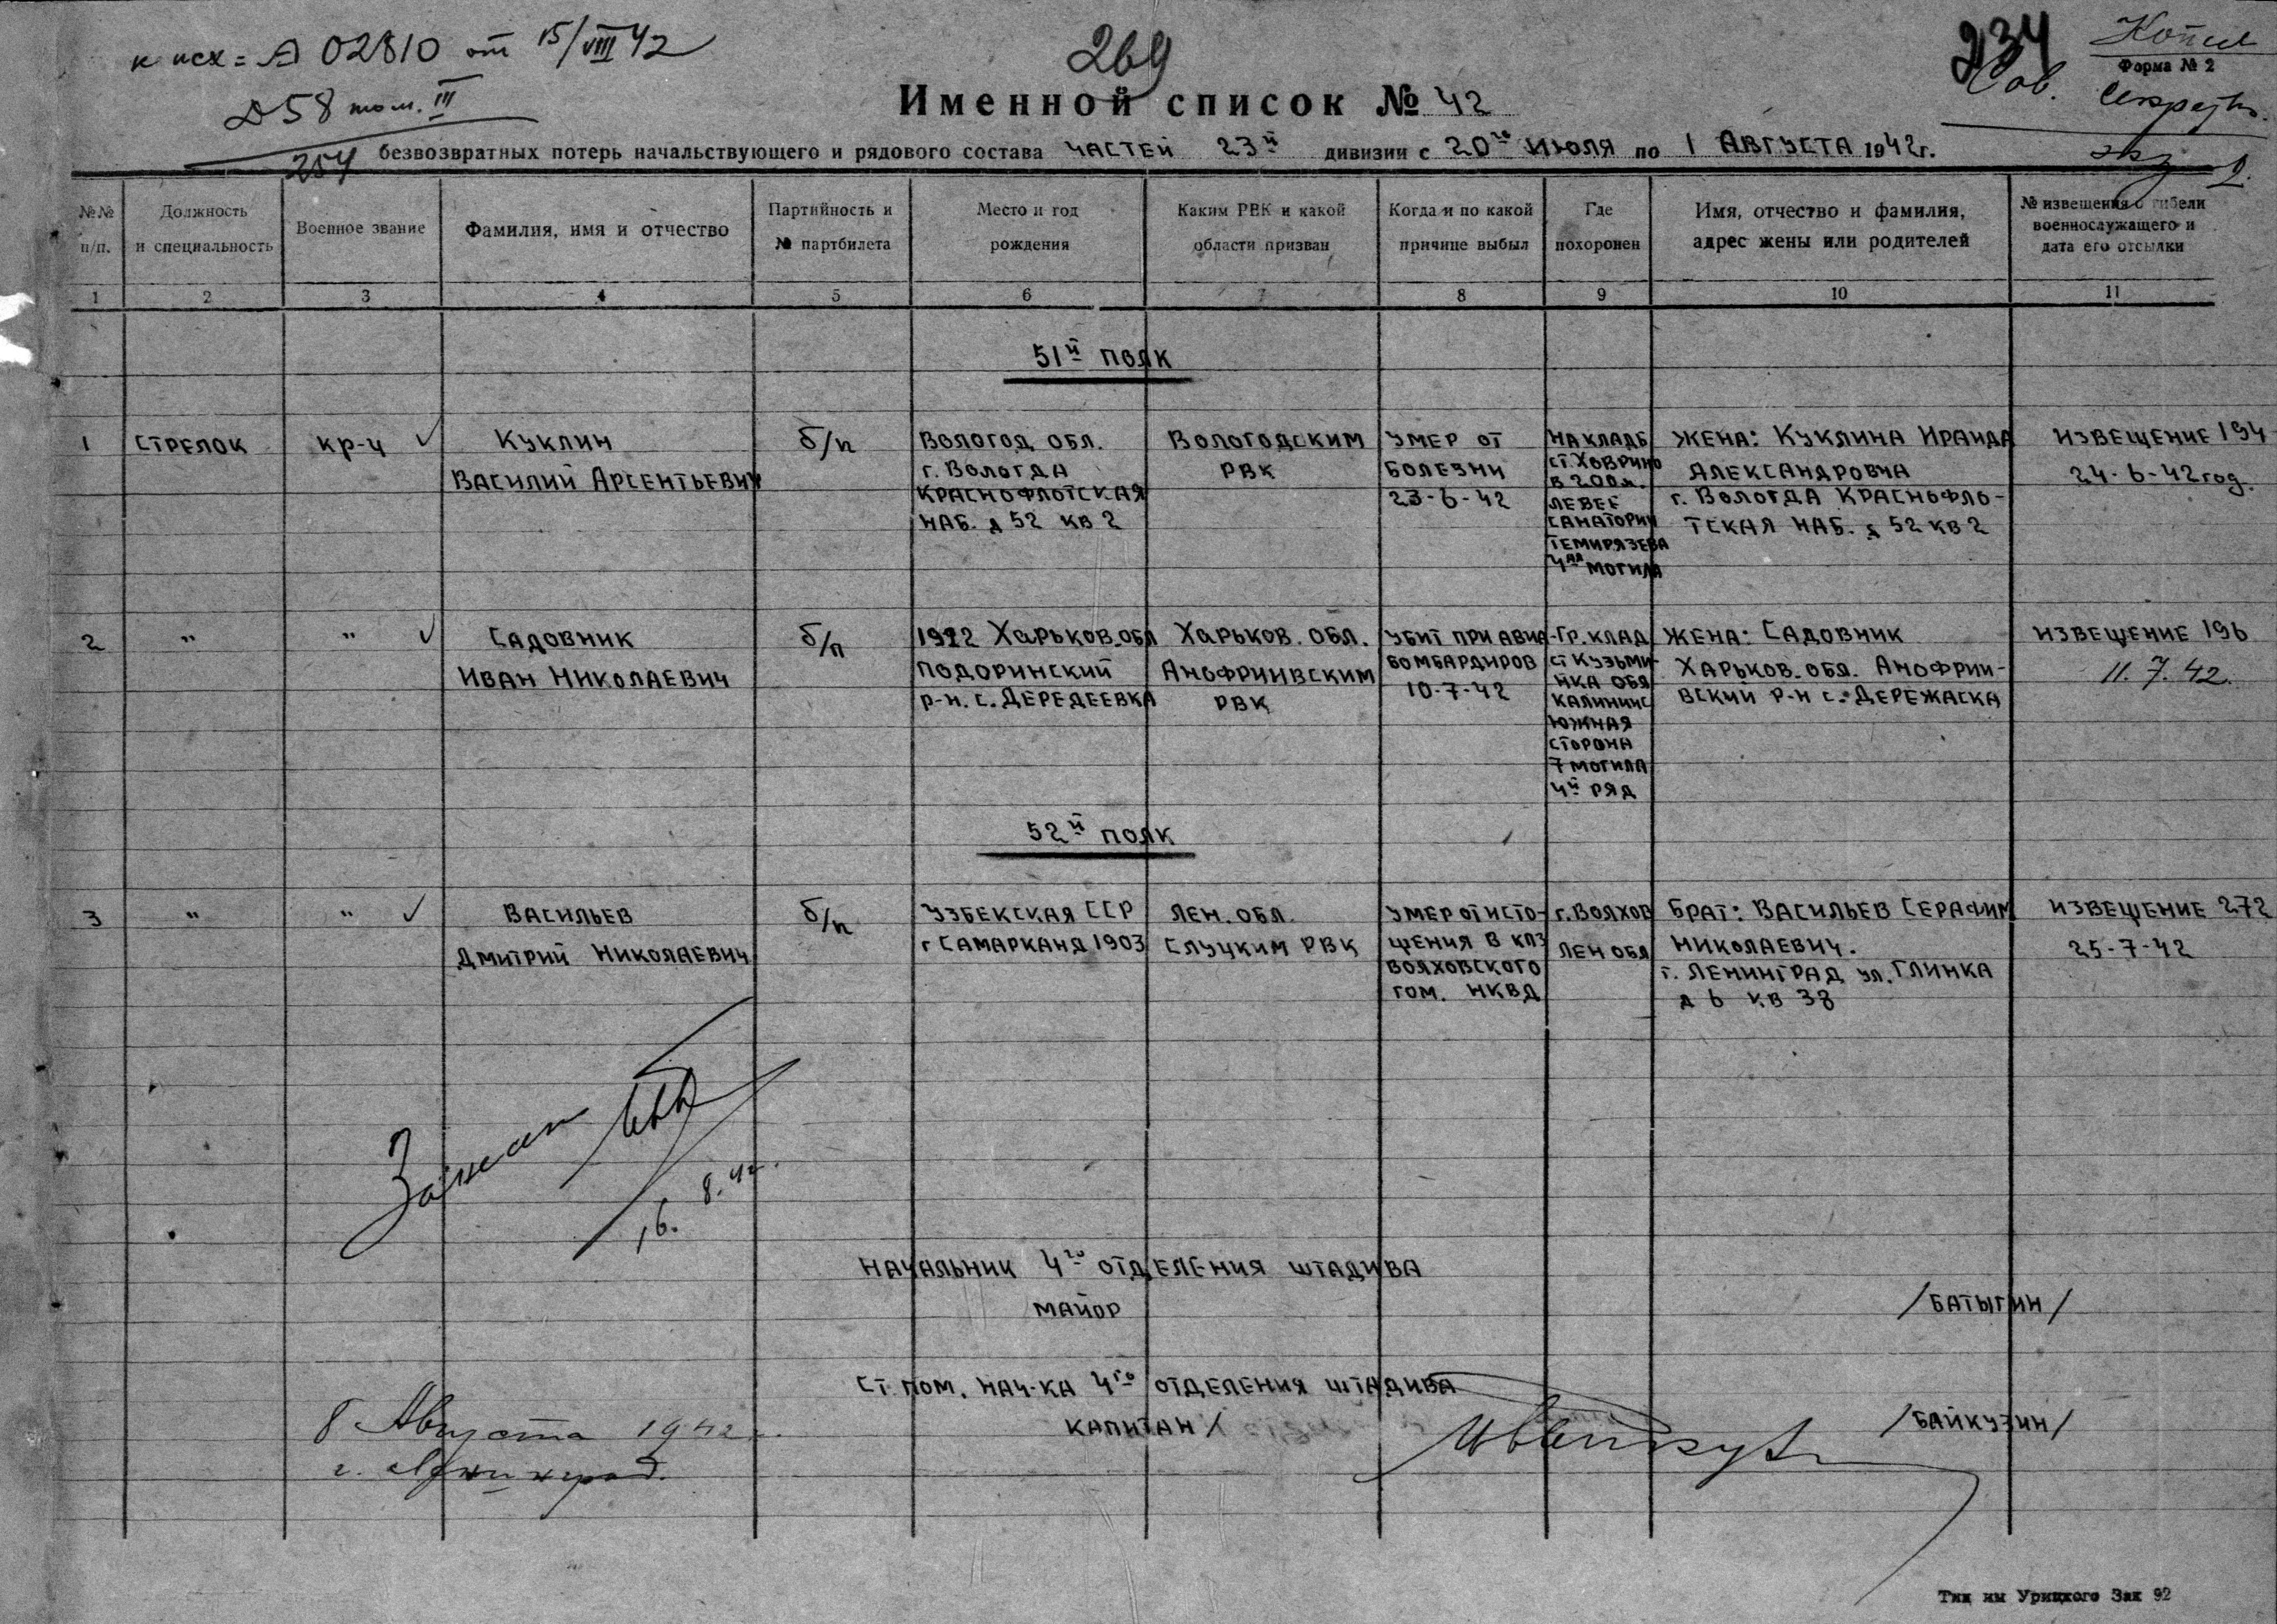 к исх = А 02810 от 15/VIII 42
Д 58 том. III
254
269
234
Копия
Форма № 2
Сов. секретно.
экз 2.
Именной список № 42
безвозвратных потерь начальствующего и рядового состава частей 23й дивизии с 20го июля по 1 августа 1942г.
№№ п/п.
Должность и специальность
Военное звание
Фамилия, имя и отчество
Партийность и № партбилета
Место и год рождения
Каким РВК и какой области призван
Когда и по какой причине выбыл
Где похоронен
Имя, отчество и фамилия, адрес жены или родителей
№ извещения о гибели военнослужащего и дата его отсылки
1 2 3 4 5 6 7 8 9 10 11
51й полк
1
стрелок
кр-ц
Куклин
Василий Арсентьевич
б/п
Вологод. обл.
г. Вологда
Краснофлотская
наб. д 52 кв 2
Вологодским
РВК
умер от
болезни
23-6-42
на кладб
ст. Ховрино
в 200 м.
левее
санатории
Темирязева
4ая могила
жена: Куклина Ираида
Александровна
г. Вологда Краснофло-
тская наб. д 52 кв 2
извещение 194
24-6-42 год.
2
"
"
Садовник
Иван Николаевич
б/п
1912 Харьков. обл
Подоринский
р-н. с. Дередеевка
Харьков. обл.
Анофриивским
РВК
убит при авиа-
бомбардиров
10-7-42
гр. клад
ст Кузьми-
нка обл
Калининс
южная
сторона
7 могила
4й ряд
жена: Садовник
Харьков. обл. Анофрии-
вский р-н с. Дережаска
извещение 196
11.7.42.
52й полк
3
"
"
Васильев
Дмитрий Николаевич
б/п
Узбекская ССР
г Самарканд 1903
Лен. обл.
Слуцким РВК
умер от исто-
щения в КПЗ
Волховского
гом. НКВД
г. Волхов
Лен обл
брат: Васильев Серафим
Николаевич.
г. Ленинград ул. Глинка
д 6 кв 38
извещение 272
25-7-42
16. 8. 42.
Начальник 4го отделения штадива
майор
/Батыгин/
Ст. пом. нач-ка 4го отделения штадива
капитан/
/Байкузин/
8 Августа 1942
г. Ленинград.
Тип им Урицкого Зак 92